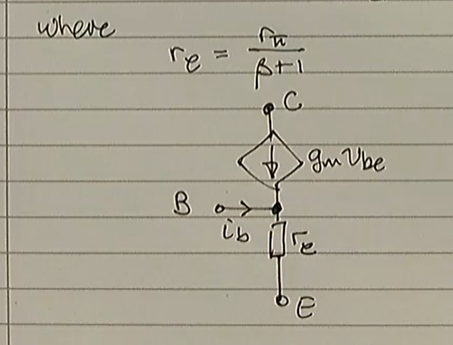 where
re = rπ / β+1
C
gmVbe
B
ib
re
E